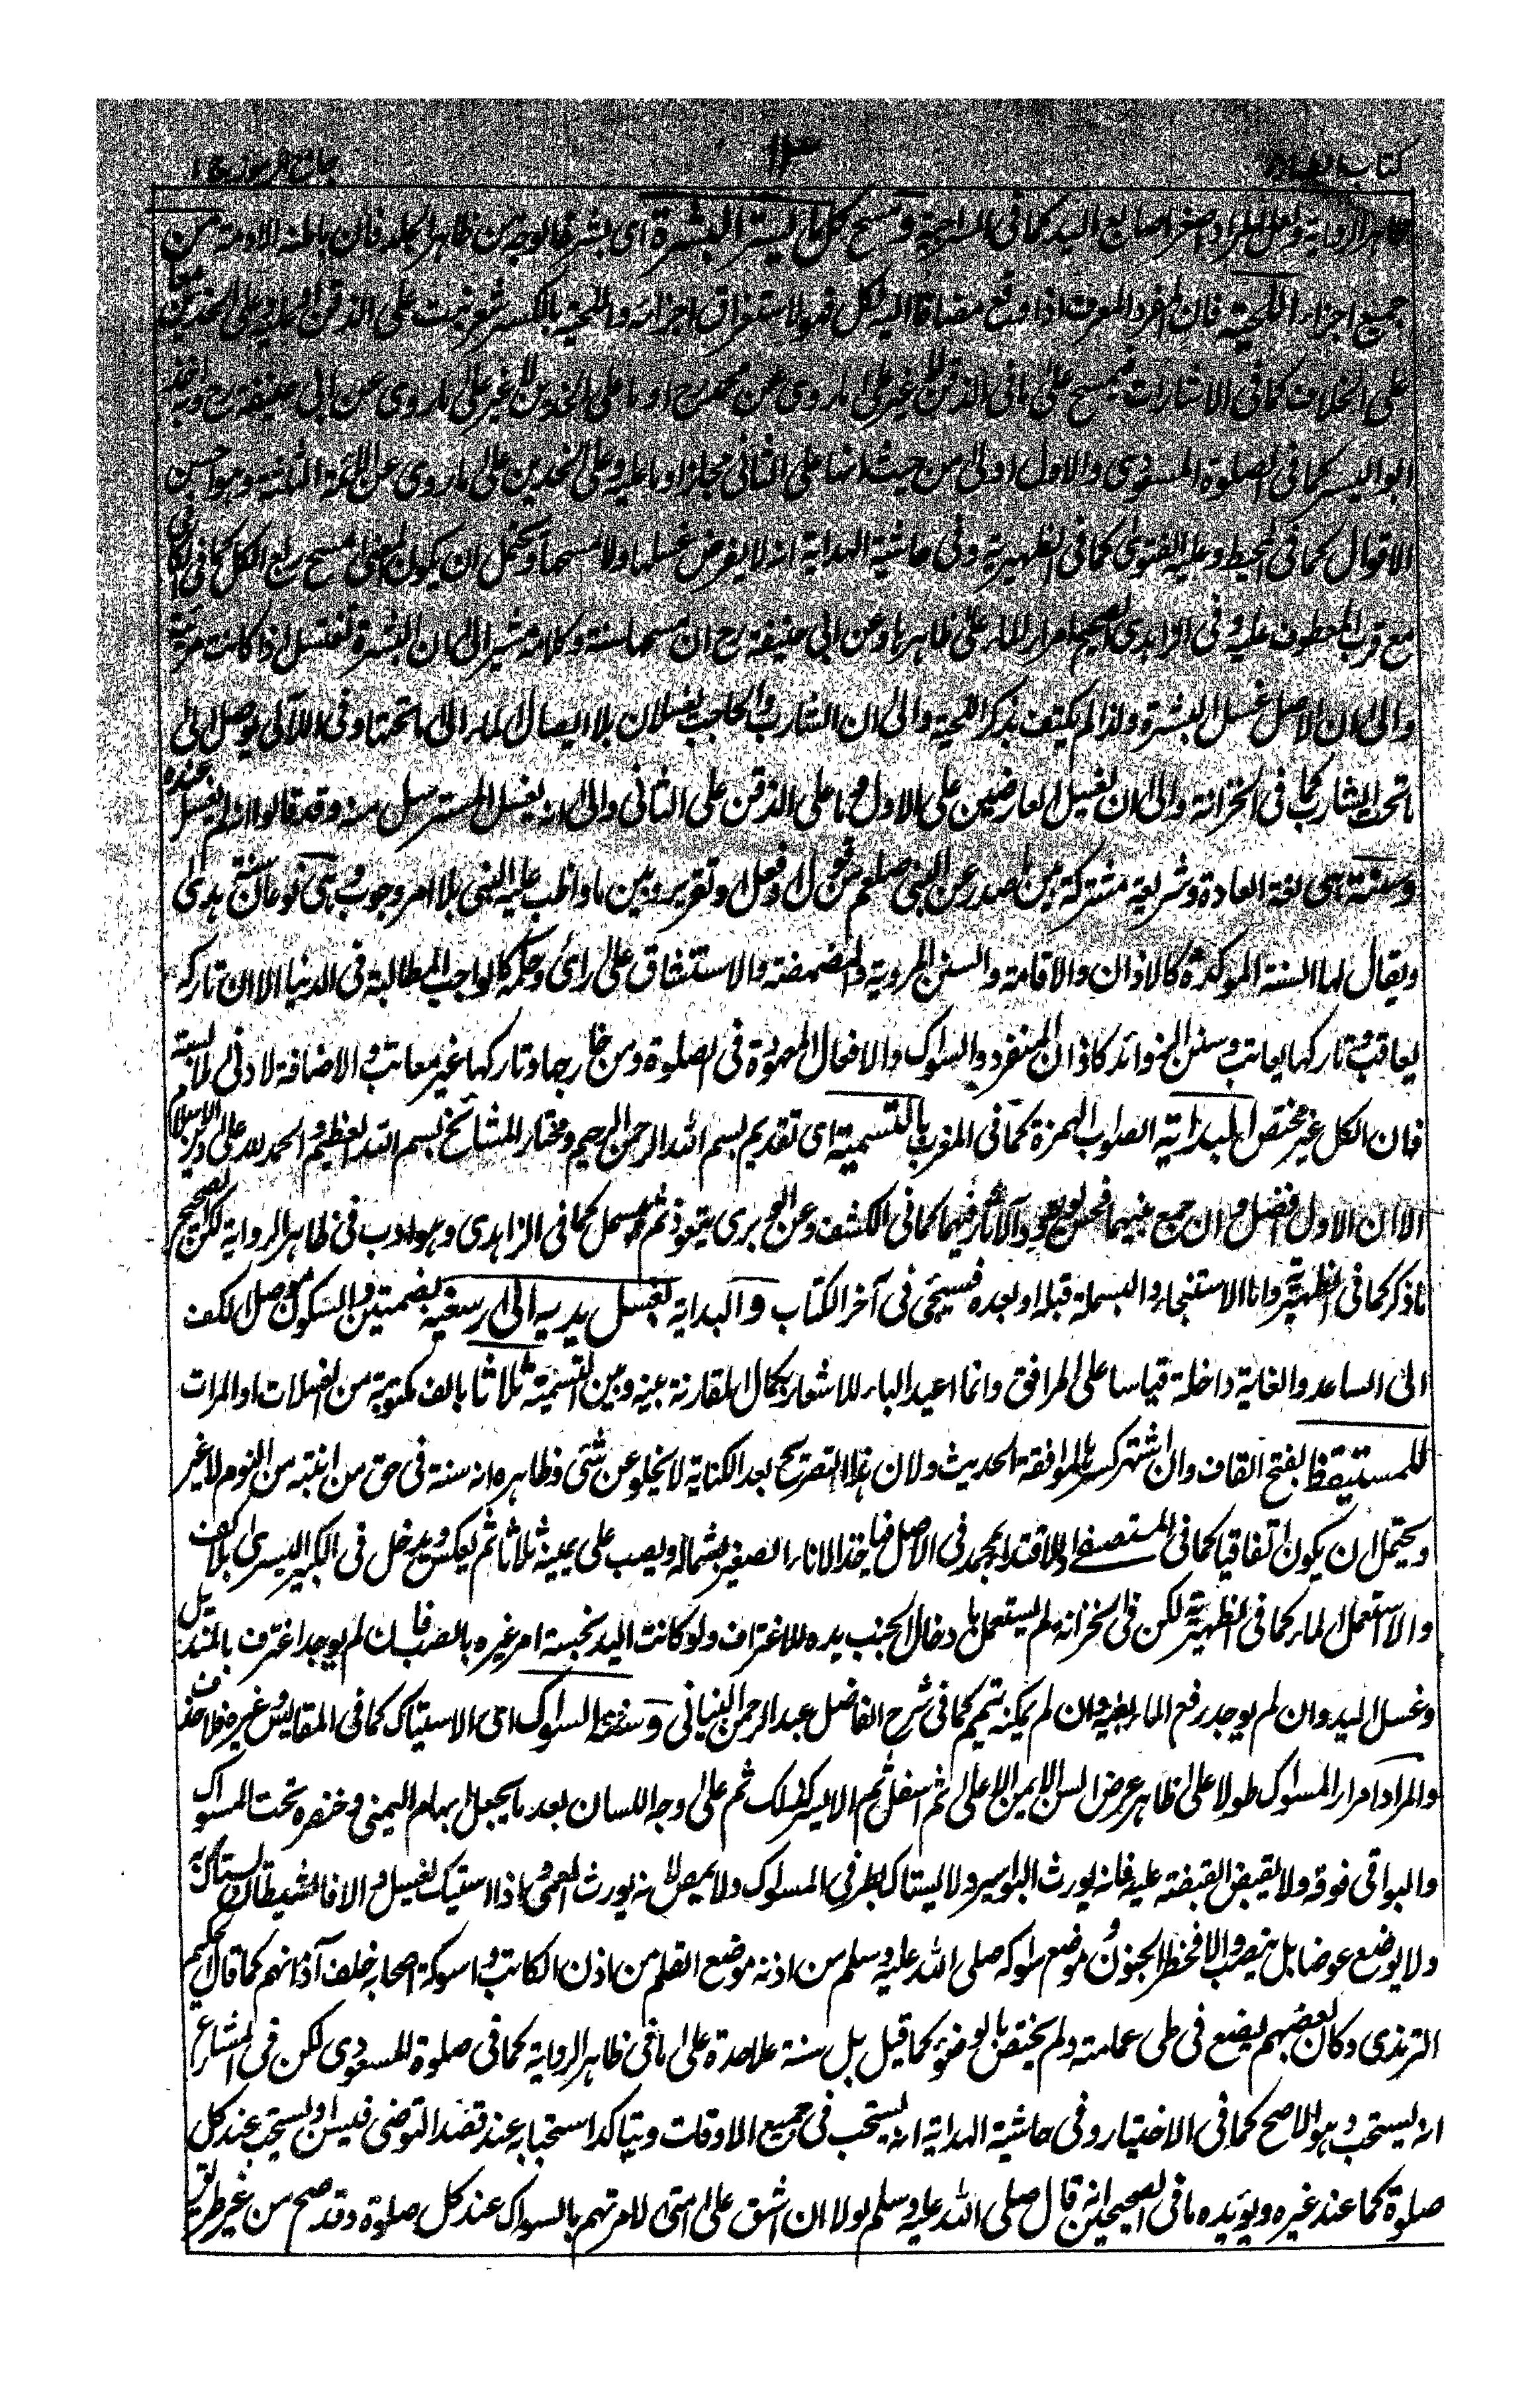 كتاب الطهارة ١٣ جامع الرموز ج ١
ظاهر الرواية ولعل المراد اصغر اصابع اليد كما في السراجية ومسح كل ما يستر البشرة اى بشرة الوجه من ظاهر الجلد فان باطنه الادمة من
جميع اجزاء اللحية فان المفرد المعرف اذا وقع مضافا اليه لكل فهو لاستغراق اجزائه واللحية بالكسر شعر نبت على الذقن او عليه وعلى الخدين
على الخلاف كما في الاشارات فيمسح على ما في الذقن لا غير على ما روى عن محمد رح او ما على الخدين لا غير على ما روى عن ابى حنيفة رح وبه اخذ
ابو اليسر كما في الصلوة المسعودى والاول اولى من حيث انها على الثاني مجاز او ما عليه وعلى الخدين على ما روى عن الائمة الثلثة وهو احسن
الاقوال كما في المحيط وعليه الفتوى كما في الظهيرية وفى حاشية الهداية انه لا يفرض غسلها ولا مسحها ويحتمل ان يكون المعنى مسح ربع الكل كما في الكافى
مع قرب المعطوف عليه وفى الزاهدى الصحيح امرار الماء على ظاهرها وعن ابى حنيفة رح ان مسحها سنة وكلامه مشير الى ان البشرة تغسل اذا كانت مرئية
والى ان الاصل غسل البشرة ولذا لم يكتف بذكر اللحية والى ان الشارب والحاجب يغسلان بلا ايصال الماء الى ما تحتها وفى اللآلى يوصل الى
ما تحت الشارب كما في الخزانة والى ان يغسل العارضين على الاول وما على الذقن على الثاني والى انه يغسل المسترسل منه وقد قالوا انه لم يغسل عنده
وسنته هى لغة العادة وشريعة مشتركة بين ما صدر عن النبى صلعم من قول او فعل او تقرير وبين ما واظب عليه النبى بلا امر وجوب وهى نوعان سنة هدى
ويقال لها السنة الموكدة كالاذان والاقامة والسنن المروية والمضمضة والاستنشاق على راى وحكمه كالواجب المطالبة في الدنيا الا ان تاركه
يعاقب وتاركها يعاتب وسنن الزوائد كاذان المنفرد والسواك والافعال المعهودة في الصلوة ومن خارجها وتاركها غير معاتب والاضافة لادنى ملابسة
فان الكل غير مختص البداية الصواب الهمزة كما في المغرب بالتسمية اى تقديم بسم الله الرحمن الرحيم ومختار المشائخ بسم الله العظيم والحمد لله على دين الاسلام
الا ان الاول افضل وان جمع بينهما فحسن والآثار فيهما كما في الكشف وعن الوبرى يتعوذ ثم يبسمل كما في الزاهدى وهو ادب في ظاهر الرواية لكن الصحيح
ما ذكر كما في الظهيرية واما الاستنجاء والبسملة قبله او بعده فسيجئ في آخر الكتاب والبداية بغسل يديه الى رسغيه بضمتين والسكون موصل الكف
الى الساعد والغاية داخلة قياسا على المرافق وانما اعيد الباء للاشعار بكمال المقارنة بينه وبين التسمية ثلاثا بالف مكتوبة من الغسلات او المرات
للمستيقظ بفتح القاف وان اشتهر كسرها للموافقة الحديث ولان التصريح بعد الكناية لا يخلو عن شئ وظاهره انه سنة في حق من انتبه من النوم لا غير
ويحتمل ان يكون اتفاقيا كما في المستصفى وللاقتداء بمحمد في الاصل فياخذ الاناء الصغير بشماله ويصب على يمينه ثلاثا ثم يعكس ويدخل في الكبير اليسرى بلا كف
والا استعمل الماء كما في الظهيرية لكن في الخزانة لم يستعمل بادخال الجنب يده للاغتراف ولو كانت اليد نجسة امر غيره بالصب فان لم يوجد اغترف بالمنديل
وغسل اليد وان لم يوجد رفع الماء بفيه وان لم يمكنه تيمم كما في شرح الفاضل عبد الرحمن البنيانى وسنته السواك اى الاستياك كما في المقاييس وغيره فلا حذف
والمراد امرار المسواك طولا على ظاهر عرض السن الايمن الاعلى ثم اسفل ثم الايسر كذلك ثم على وجه اللسان بعد ما يجعل ابهام اليمنى وخنصره تحت المسواك
والبواقى فوقه ولا يقبض القبضة عليه فانه يورث البواسير ولا يستاك بطرفى المسواك ولا يمص لانه يورث العمى واذا استيك يغسل والا فالشيطان يستاك به
ولا يوضع عرضا بل ينصب والا فخطر الجنون وموضع سواكه صلى الله عليه وسلم من اذنه موضع القلم من اذن الكاتب واسوكة اصحابه خلف آذانهم كما قال الحكيم
الترمذى وكان بعضهم يضع في طى عمامته ولم يختص بالوضوء كما قيل بل سنة علاحدة على ما في ظاهر الرواية كما في صلوة المسعودى لكن في المشارع
انه يستحب وهو الاصح كما في الاختيار وفى حاشية الهداية انه يستحب في جميع الاوقات ويتاكد استحبابه عند قصد التوضى فيسن او يستحب عند كل
صلوة كما عند غيره ويؤيده ما في الصحيحين انه قال صلى الله عليه وسلم لولا ان اشق على امتى لامرتهم بالسواك عند كل صلوة وقد صح من غير طريق